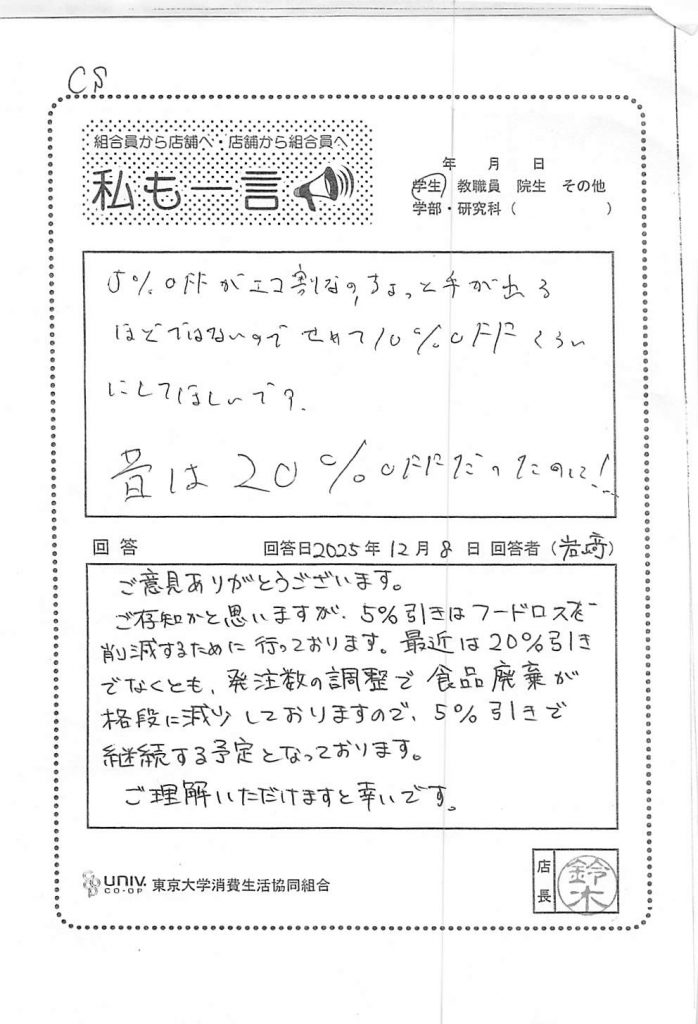 CS
組合員から店舗へ・店舗から組合員へ
私も一言
年 月 日
学生 教職員 院生 その他
学部・研究科（ ）
5%OFFがエコ割なの、ちょっと手が出る
ほどではないので せめて10%OFFくらい
にしてほしいです.
昔は20%OFFだったのに!
回答 回答日2025年12月8日 回答者（岩﨑）
ご意見ありがとうございます。
ご存知かと思いますが、5%引きはフードロスを
削減するために行っております。最近は20%引き
でなくとも、発注数の調整で食品廃棄が
格段に減少しておりますので、5%引きで
継続する予定となっております。
ご理解いただけますと幸いです。
UNIV. CO-OP 東京大学消費生活協同組合
店長 鈴木